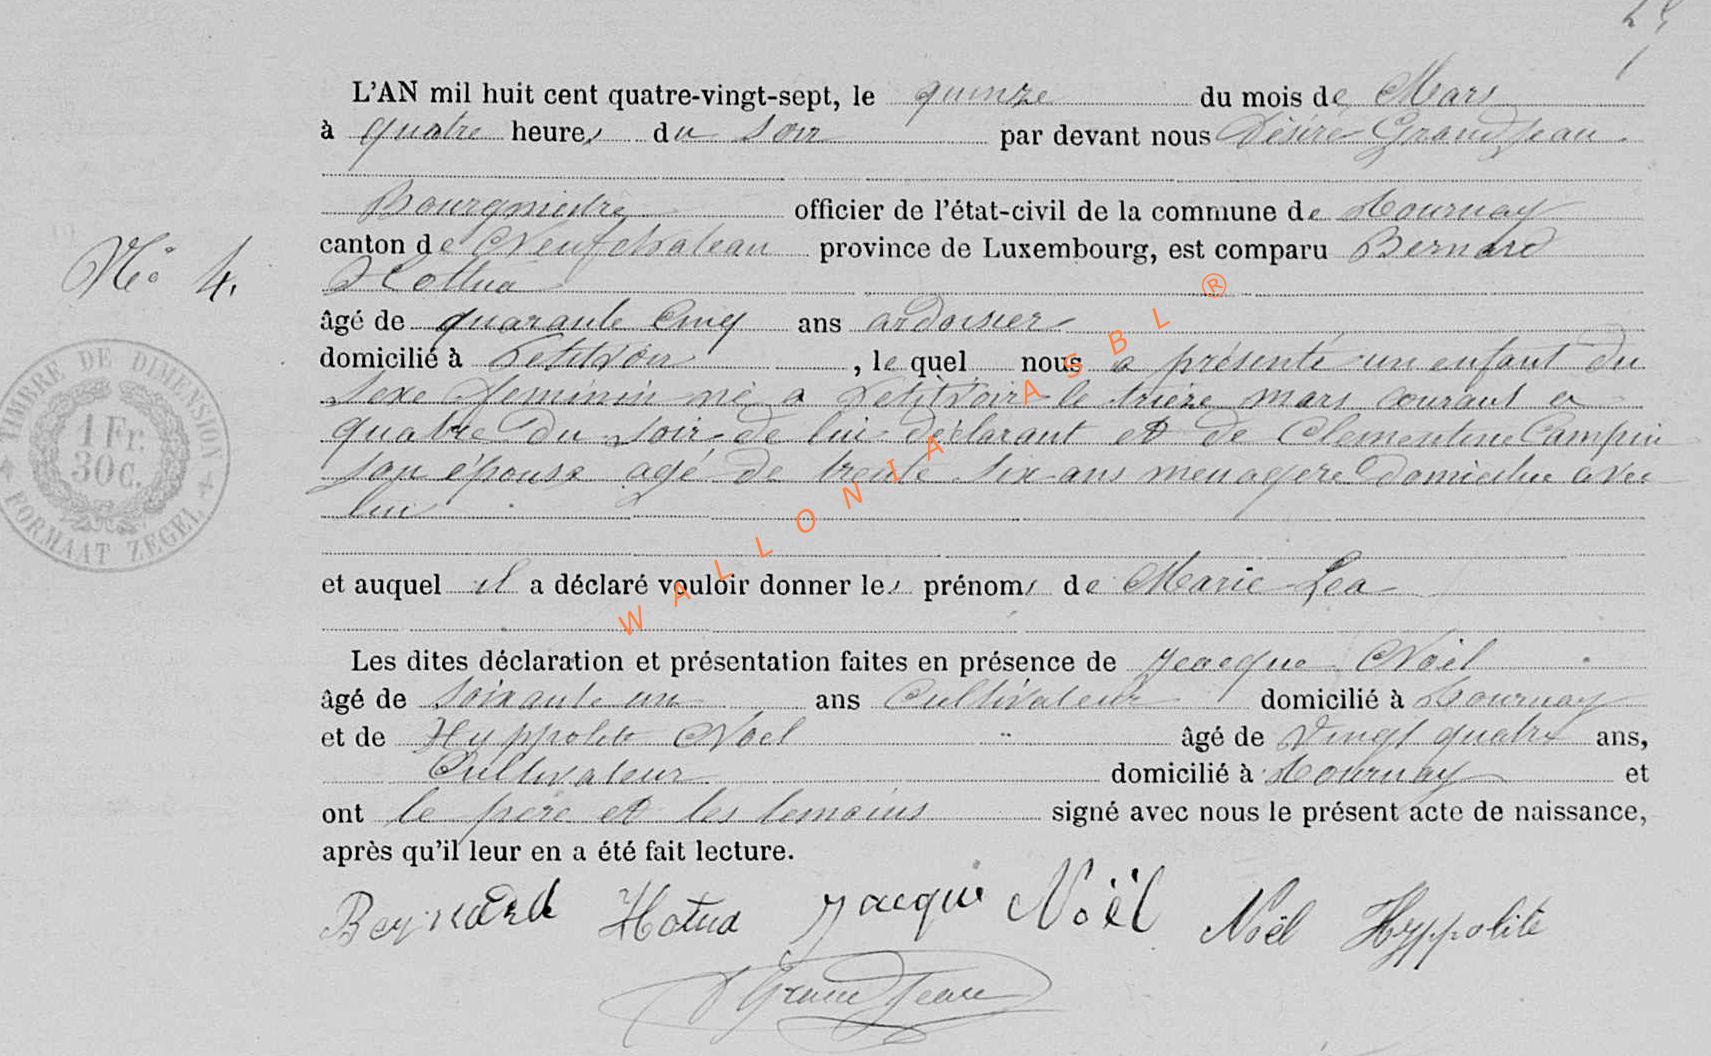 25
L'AN mil huit cent quatre-vingt-sept, le quinze du mois de Mars
à quatre heures du soir par devant nous Désiré Grandjean
Bourgmestre officier de l'état-civil de la commune de Tournay
canton de Neufchateau province de Luxembourg, est comparu Bernard
No 4.
Hottua
âgé de quarante cinq ans ardoisier
domicilié à Petitvoir, le quel nous a présenté un enfant du
sexe feminin né a Petitvoir le trieze mars courant a
quatre du soir de lui déclarant et de Clementine Campin
son épouse agé de trente six ans menagere domiciliée avec
lui
et auquel il a déclaré vouloir donner les prénoms de Marie Lea
Les dites déclaration et présentation faites en présence de Jacque Noël
âgé de soixante un ans Cultivateur domicilié à Tournay
et de Hyppolite Noel âgé de Vingt quatre ans,
Cultivateur domicilié à Tournay et
ont le père et les temoins signé avec nous le présent acte de naissance,
après qu'il leur en a été fait lecture.
Bernard Hotua Jacque Noël Noël Hyppolite
D Grandjean
TIMBRE DE DIMENSION
1 Fr.
30 c.
FORMAAT ZEGEL
WALLONIA ASBL ®